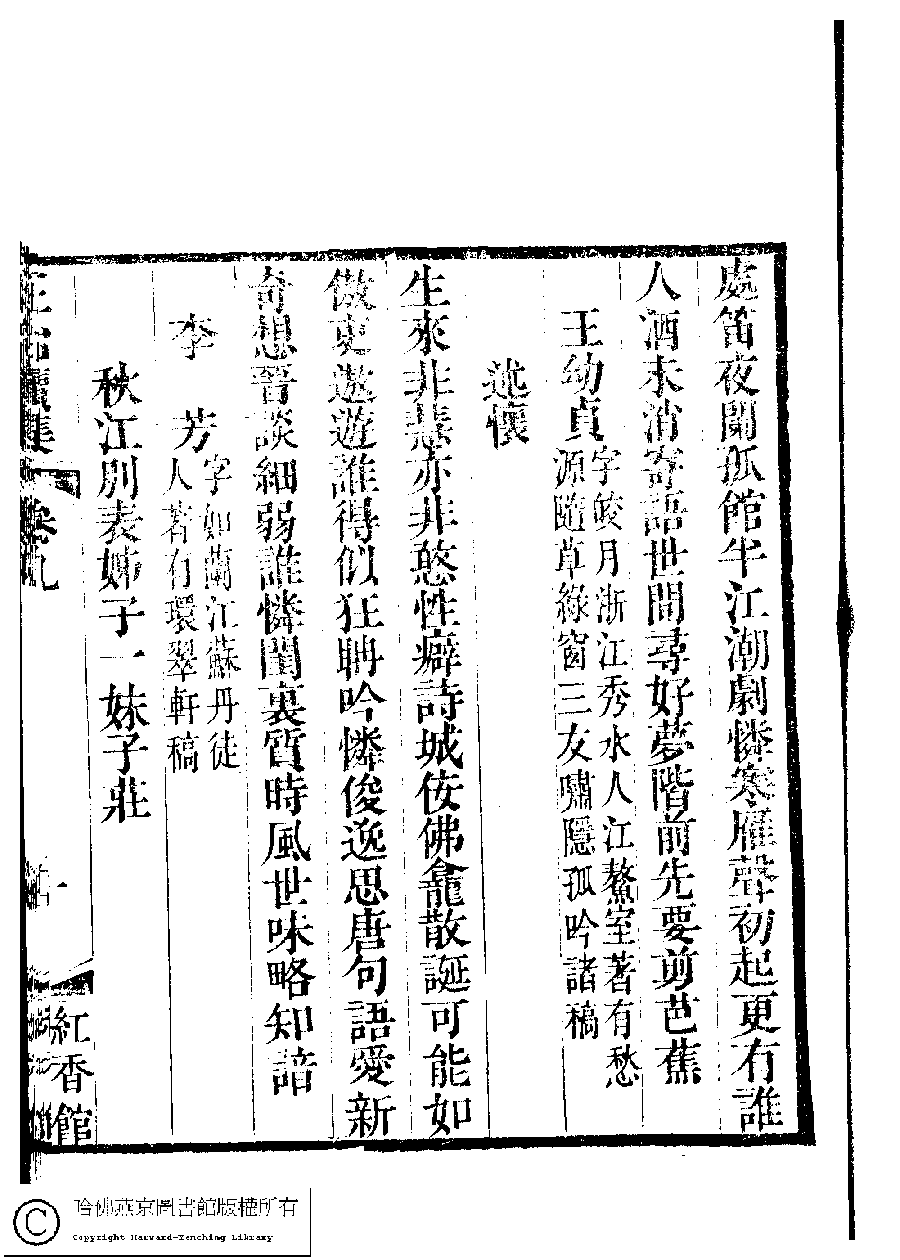 處笛夜闌孤館半江潮劇憐寒雁聲初起更有誰
人酒未消寄語世間尋好夢階前先要剪芭蕉
王幼貞字皎月浙江秀水人江鰲室著有愁
源隨草綠窗三友嘯隱孤吟諸稿
述懷
生來非慧亦非憨性癖詩城佞佛龕散誕可能如
倣吏遨遊誰得似狂聃吟憐俊逸思唐句語愛新
奇想晉談細弱誰憐閨裏質時風世味略知諳
李芳字如蘭江蘇丹徒
人著有環翠軒稿
秋江別表姊子一妹子莊
卷九
紅香館
哈佛燕京圖書館版權所有
Copyright Harvard-Yenching Library